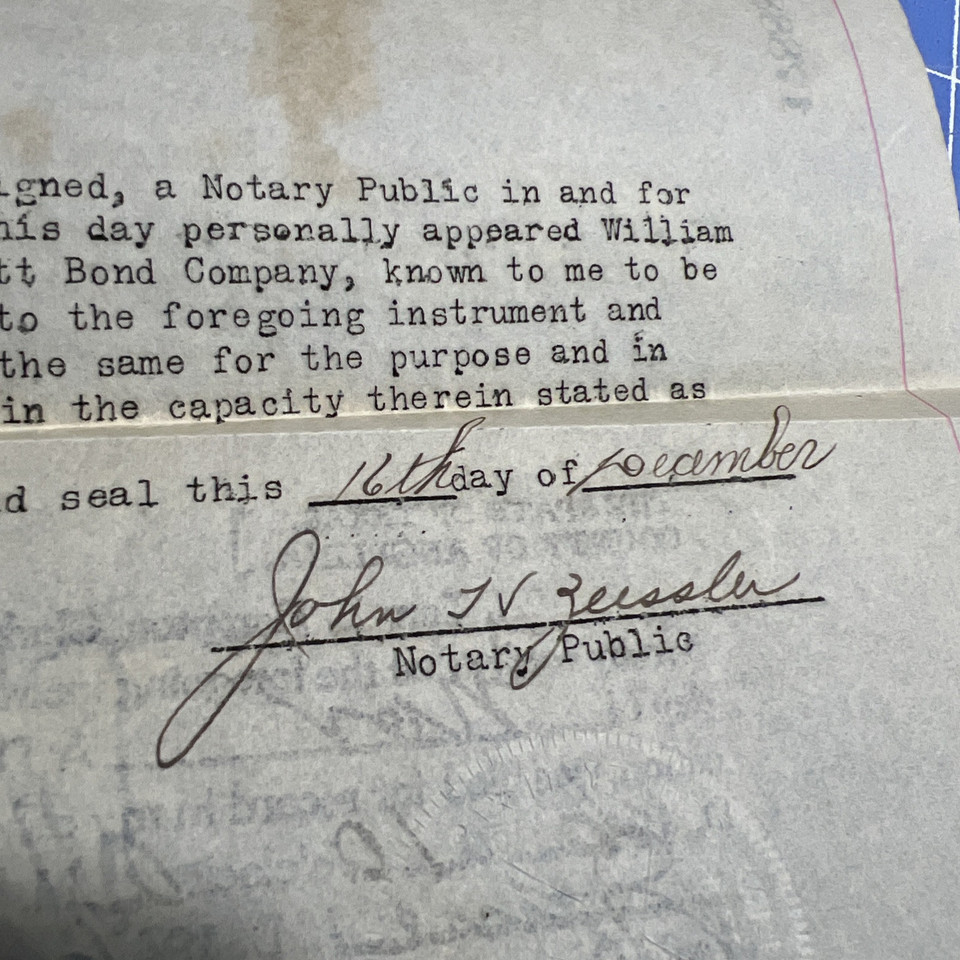 igned, a Notary Public in and for
his day personally appeared William
tt Bond Company, known to me to be
to the foregoing instrument and
the same for the purpose and in
in the capacity therein stated as
d seal this 16th day of December
John
Notary Public